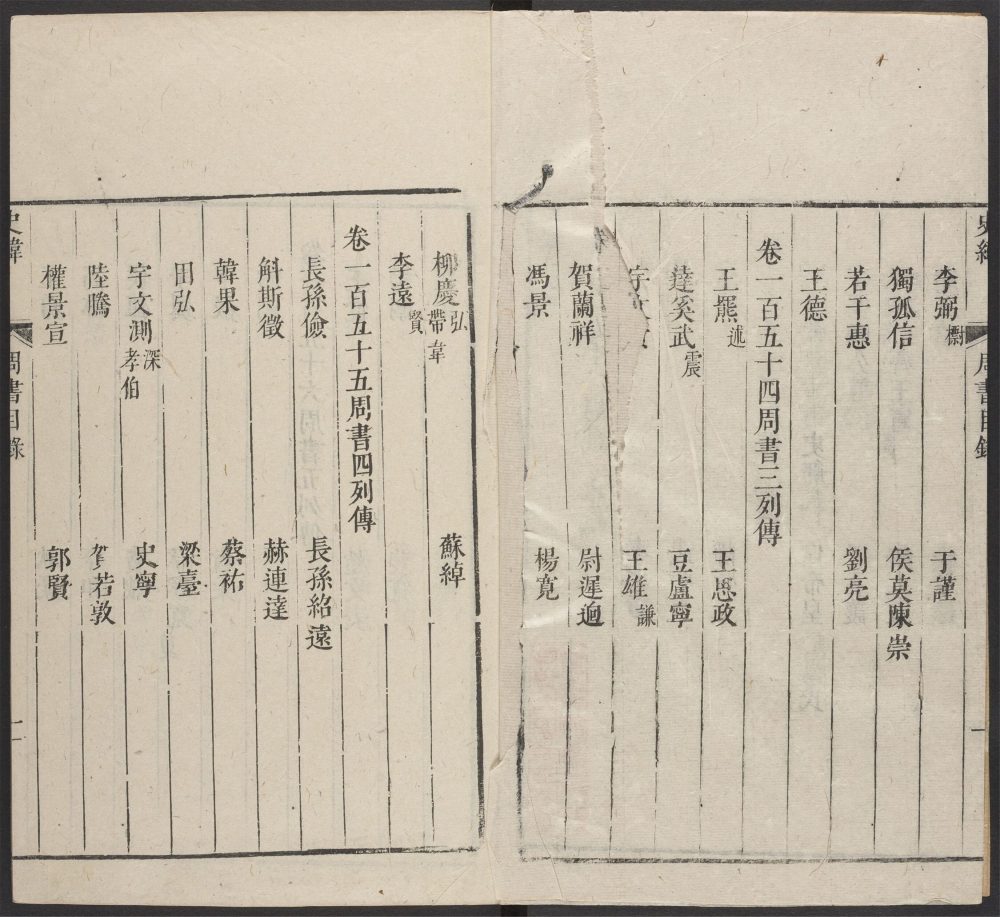 李弼 㯹 于謹
獨孤信 侯莫陳崇
若干惠 劉亮
王德
卷一百五十四周書三列傳
王羆 述 王思政
達奚武 震 豆盧寧
宇文 王雄 謙
賀蘭祥 尉遲迥
馮景 楊寬
柳慶 弘 帶韋 蘇綽
李遠 賢
卷一百五十五周書四列傳
長孫儉 長孫紹遠
斛斯徵 赫連達
韓果 蔡祐
田弘 梁臺
宇文測 深 孝伯 史寧
陸騰 賀若敦
權景宣 郭賢
史緯 周書目錄 二